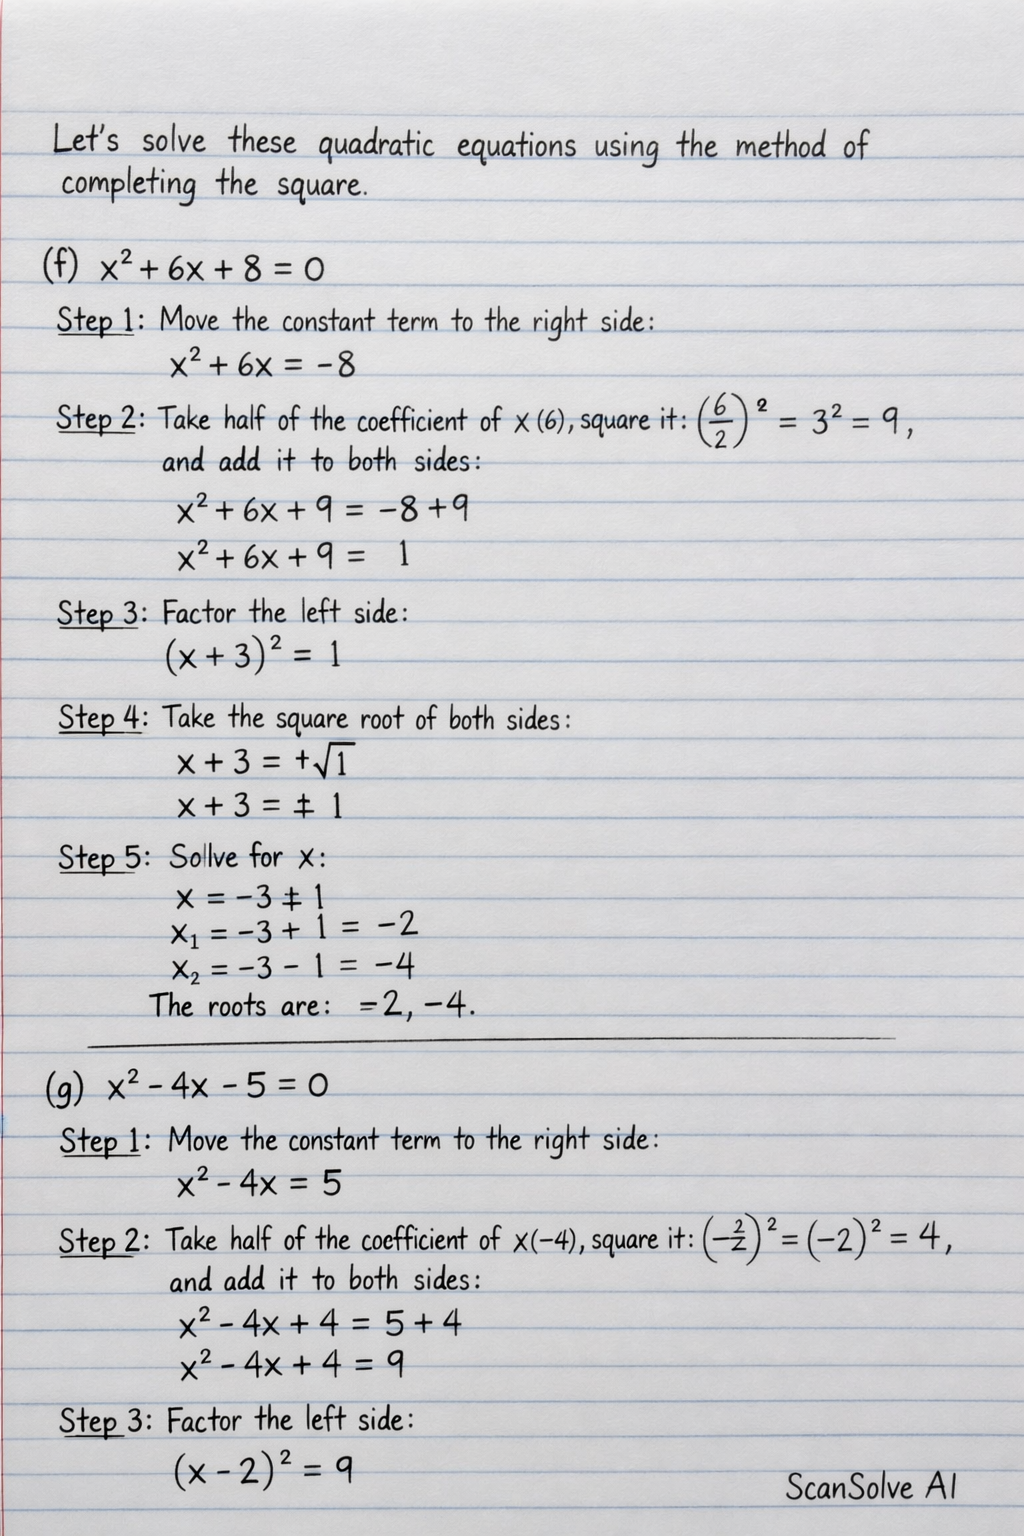 Let's solve these quadratic equations using the method of
completing the square.
(f) x² + 6x + 8 = 0
Step 1: Move the constant term to the right side:
x² + 6x = -8
Step 2: Take half of the coefficient of x (6), square it: (6/2)² = 3² = 9,
and add it to both sides:
x² + 6x + 9 = -8 + 9
x² + 6x + 9 = 1
Step 3: Factor the left side:
(x + 3)² = 1
Step 4: Take the square root of both sides:
x + 3 = +√1
x + 3 = ± 1
Step 5: Sollve for x:
x = -3 ± 1
x₁ = -3 + 1 = -2
x₂ = -3 - 1 = -4
The roots are: =2, -4.
(g) x² - 4x - 5 = 0
Step 1: Move the constant term to the right side:
x² - 4x = 5
Step 2: Take half of the coefficient of x(-4), square it: (-2/2)² = (-2)² = 4,
and add it to both sides:
x² - 4x + 4 = 5 + 4
x² - 4x + 4 = 9
Step 3: Factor the left side:
(x - 2)² = 9
ScanSolve AI